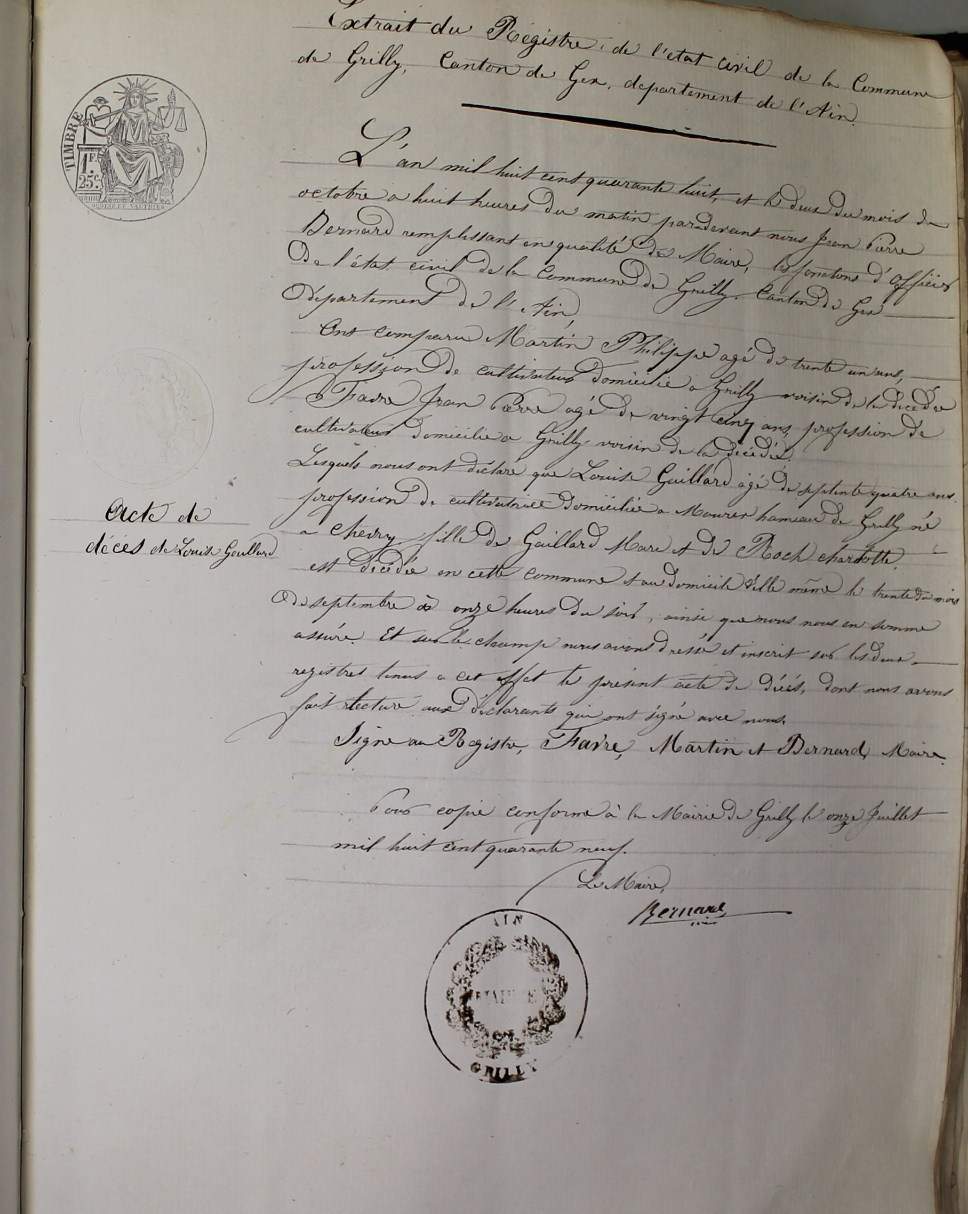 Extrait du Régistre de l'état civil de la Commune
de Grilly, Canton de Gex, département de l'Ain.
TIMBRE
1 F.
25c.
L'an mil huit cent quarante huit, et le deux du mois de
octobre a huit heures du matin pardevant nous Jean Pierre
Bernard remplissant en qualité de Maire, les fonctions d'officier
De l'état civil de la Commune de Grilly, Canton de Gex
département de l'Ain
Ont comparu Martin Philippe agé de trente un ans,
profession de cultivateur domicilié a Grilly voisin de la décédée
& Favre Jean Pierre agé de vingt cinq ans, profession de
cultivateur domicilié a Grilly voisin de la décédée.
Lesquels nous ont déclaré que Louise Gaillard agé de septente quatre ans
profession de cultivatrice domiciliée a Mourex hameau de Grilly né
a Chevry fille de Gaillard Marc et de Roch charlotte.
est décédée en cette commune & au domicile d'elle même le trente du mois
De septembre à onze heures du soir, ainsi que nous nous en somme
assuré. Et sur le champ nous avons dressé et inscrit sur les deux
registres tenus a cet effet le présent acte de décés, dont nous avons
fait lecture aux déclarants qui ont signé avec nous,
Signé au Registre, Favre, Martin et Bernard, Maire.
Acte de
décès de Louise Gaillard
Pour copie conforme à la Mairie de Grilly le onze Juillet
mil huit cent quarante neuf.
Le Maire,
Bernard
AIN
GRILLY